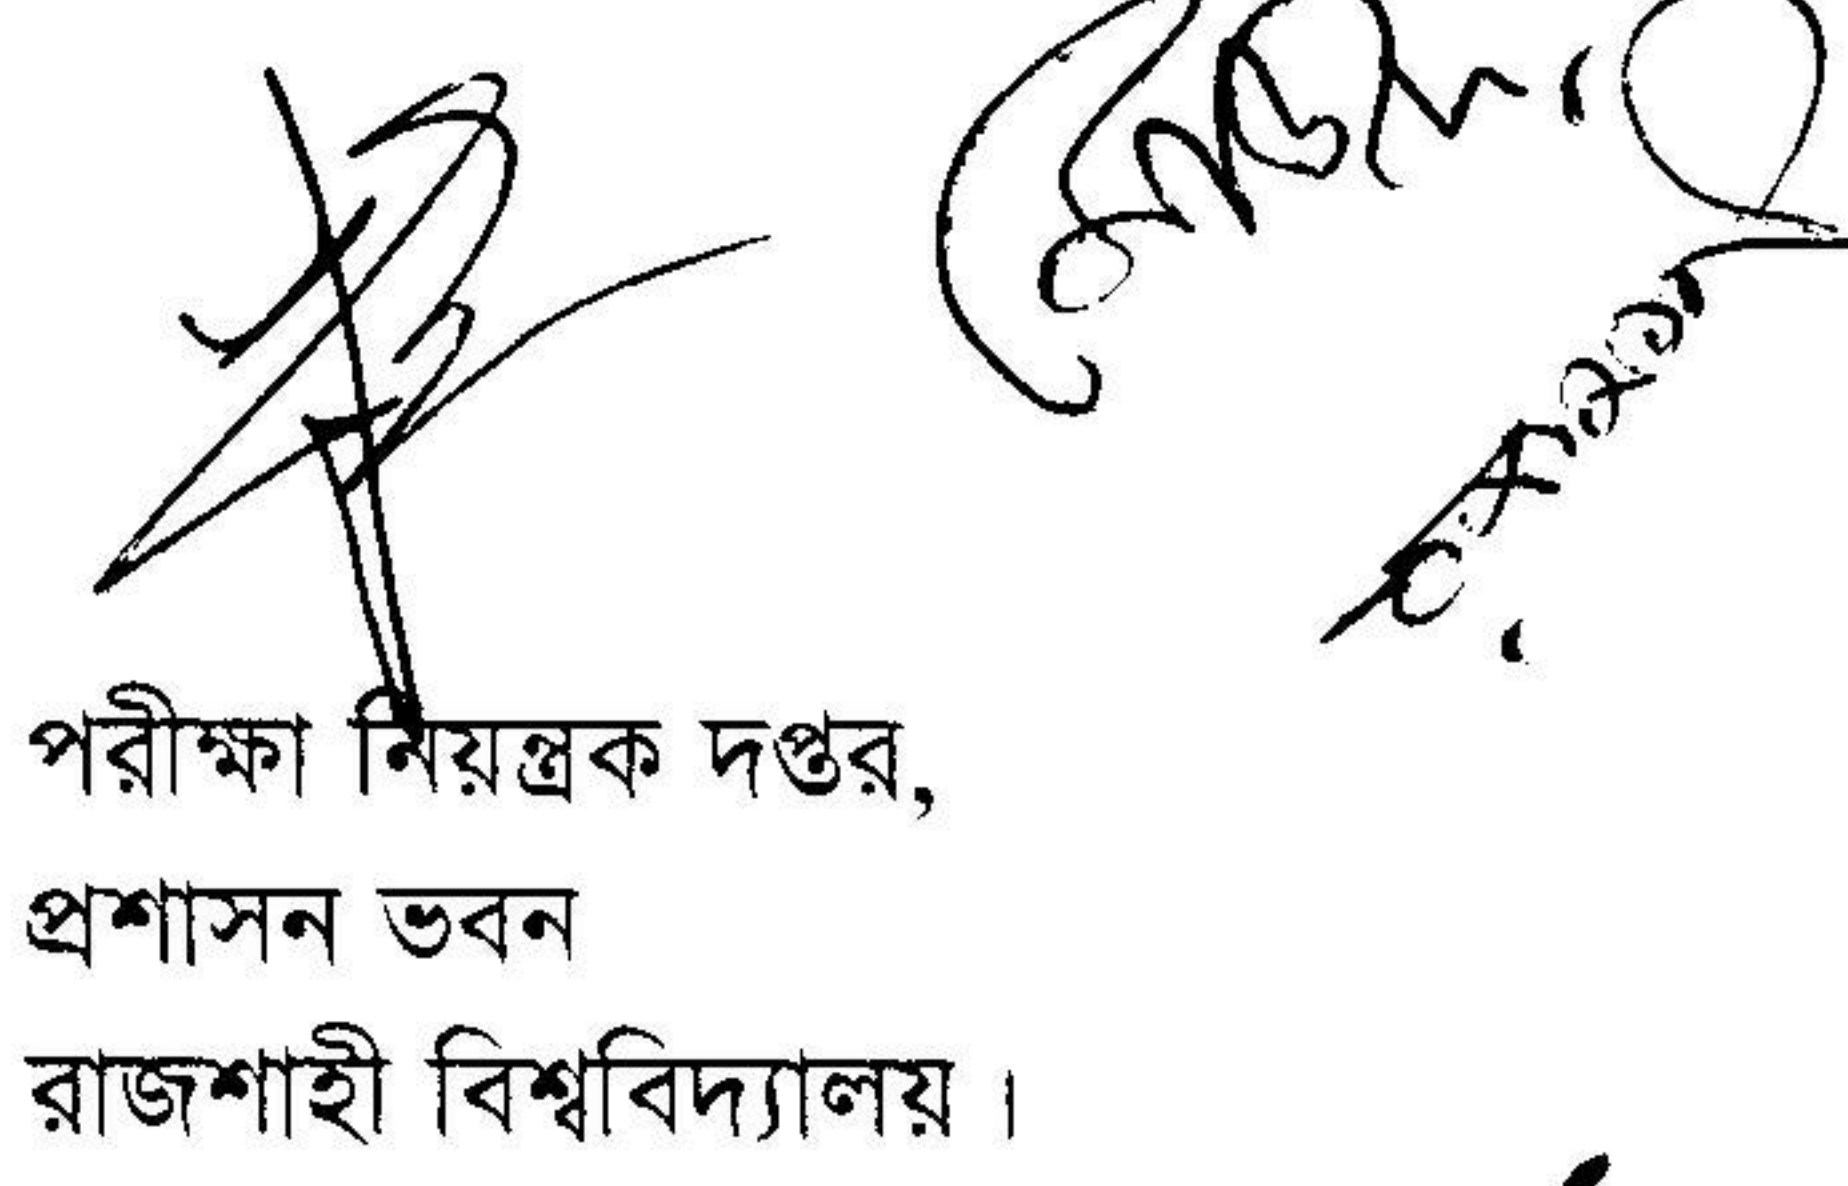 পরীক্ষা নিয়ন্ত্রক দপ্তর,
প্রশাসন ভবন
রাজশাহী বিশ্ববিদ্যালয় ।